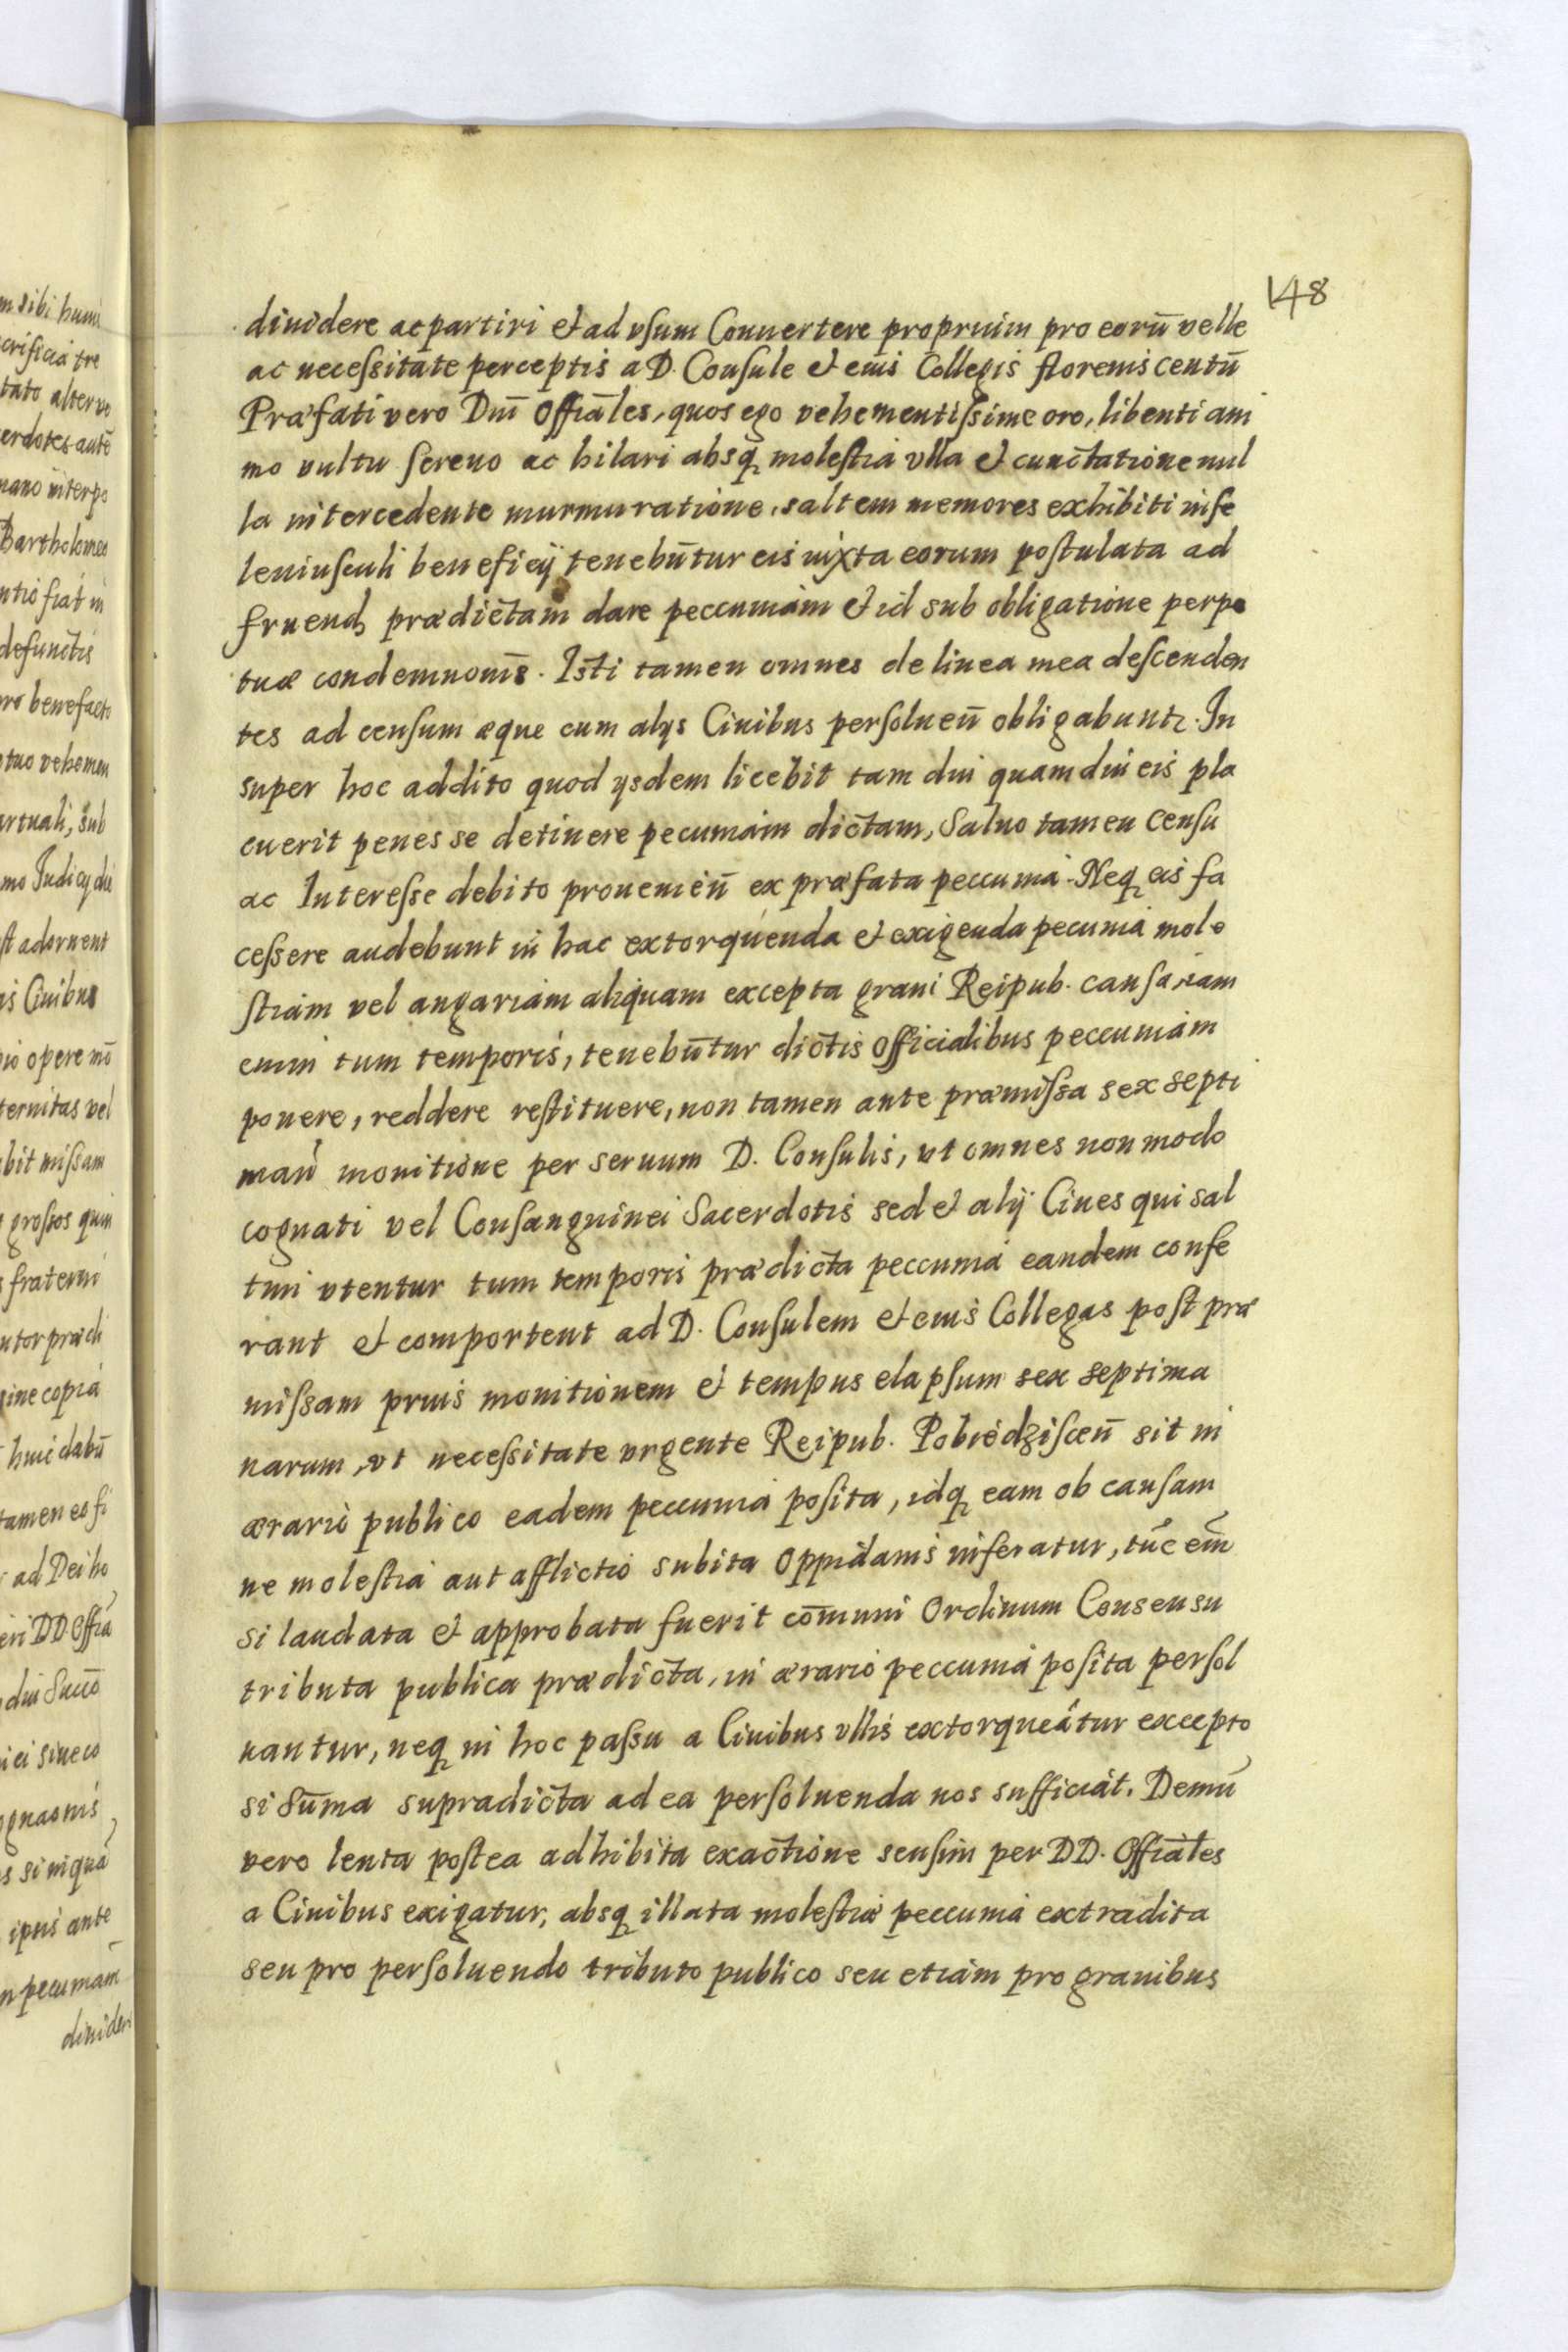 148
diuidere ac partiri et ad vsum Conuertere proprium pro eorū velle
ac necessitate perceptis a D. Consule et eius Collegis florenis centū
Præfati vero Dnī Offiāles, quos ego vehementissime oro, libenti ani
mo vultu sereno ac hilari absq molestia vlla et cunctatione nul
la intercedente murmuratione, saltem memores exhibiti in se
leuiusculi beneficij tenebūtur eis iuxta eorum postulata ad
fruend prædictam dare peccuniam et id sub obligatione perpe
tuæ condemnonis. Isti tamen omnes de linea mea descenden
tes ad censum æque cum alys Ciuibus persoluen̄ obligabuntr. In
super hoc addito quod ysdem licebit tam diu quamdiu eis pla
cuerit penes se detinere pecuniam dictam, Saluo tamen Censu
ac Interesse debito prouenien̄ ex præfata peccunia. Neq eis fa
cessere audebunt in hac extorquenda et exigenda pecunia mole
stiam vel angariam aliquam excepta graui Reipub. causa, iam
enim tum temporis, tenebūtur dictis Officialibus peccuniam
ponere, reddere restituere, non tamen ante præmissa sex septi
man̄ monitione per seruum D. Consulis, vt omnes non modo
cognati vel Consanguinei Sacerdotis sed et alij Ciues qui sal
tim vtentur tum temporis prædicta peccunia eandem confe
rant et comportent ad D. Consulem et eius Collegas post præ
missam prius monitionem et tempus elapsum sex septima
narum, vt necessitate vrgente Reipub. Pobiedziscen̄ sit in
ærario publico eadem peccunia posita, idq eam ob causam
ne molestia aut afflictio subita Oppidanis inferatur, tūc eīm
si laudata et approbata fuerit cōmuni Ordinum Consensu
tributa publica prædicta, in ærario peccunia posita persol
uantur, neq in hoc passu a Ciuibus vllis extorqueātur excepto
si Sūma supradicta ad ea persoluenda nos sufficiat. Demū
vero lenta postea adhibita exactione sensim per DD. Offiāles
a Ciuibus exigatur, absq illata molestia peccunia extradita
seu pro persoluendo tributo publico seu etiam pro grauibus